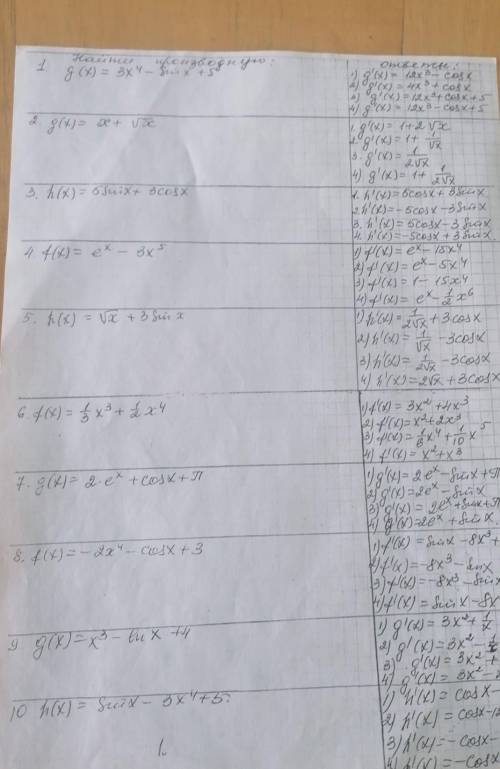 Найти производную:
ответы:
1. g(x) = 3x⁴ - sinx + 5
1) g'(x) = 12x³ - cosx
2) g'(x) = 4x³ + cosx
3) g'(x) = 12x³ + cosx + 5
4) g'(x) = 12x³ - cosx + 5
2. g(x) = x + √x
1. g'(x) = 1 + 2√x
2. g'(x) = 1 + 1/√x
3. g'(x) = 1/2√x
4) g'(x) = 1 + 1/2√x
3. h(x) = 5sinx + 3cosx
1. h'(x) = 5cosx + 3sinx
2. h'(x) = -5cosx - 3sinx
3. h'(x) = 5cosx - 3sinx
4. h'(x) = -5cosx + 3sinx
4. f(x) = eˣ - 3x⁵
1) f'(x) = eˣ - 15x⁴
2) f'(x) = eˣ - 5x⁴
3) f'(x) = 1 - 15x⁴
4) f'(x) = eˣ - 1/2 x⁶
5. h(x) = √x + 3sinx
1) h'(x) = 1/2√x + 3cosx
2) h'(x) = 1/√x - 3cosx
3) h'(x) = 1/2√x - 3cosx
4) h'(x) = 2√x + 3cosx
6. f(x) = 1/3 x³ + 1/2 x⁴
1) f'(x) = 3x² + 4x³
2) f'(x) = x² + 2x³
3) f'(x) = 1/6 x⁴ + 1/10 x⁵
4) f'(x) = x² + x³
7. g(x) = 2·eˣ + cosx + π
1) g'(x) = 2eˣ - sinx + π
2) g'(x) = 2eˣ - sinx
3) g'(x) = 2eˣ + sinx + π
4) g'(x) = 2eˣ + sinx
8. f(x) = -2x⁴ - cosx + 3
1) f'(x) = sinx - 8x³ +
2) f'(x) = -8x³ - sinx
3) f'(x) = -8x³ - sinx
4) f'(x) = sinx - 8x
9 g(x) = x³ - lnx + 4
1) g'(x) = 3x² + 1/x
2) g'(x) = 3x² -
3) g'(x) = 3x² +
4) g'(x) = 3x² -
10 h(x) = sinx - 3x⁴ + 5.
1) h'(x) = cosx -
2) h'(x) = cosx - 12
3) h'(x) = -cosx -
4) h'(x) = -cosx
1.